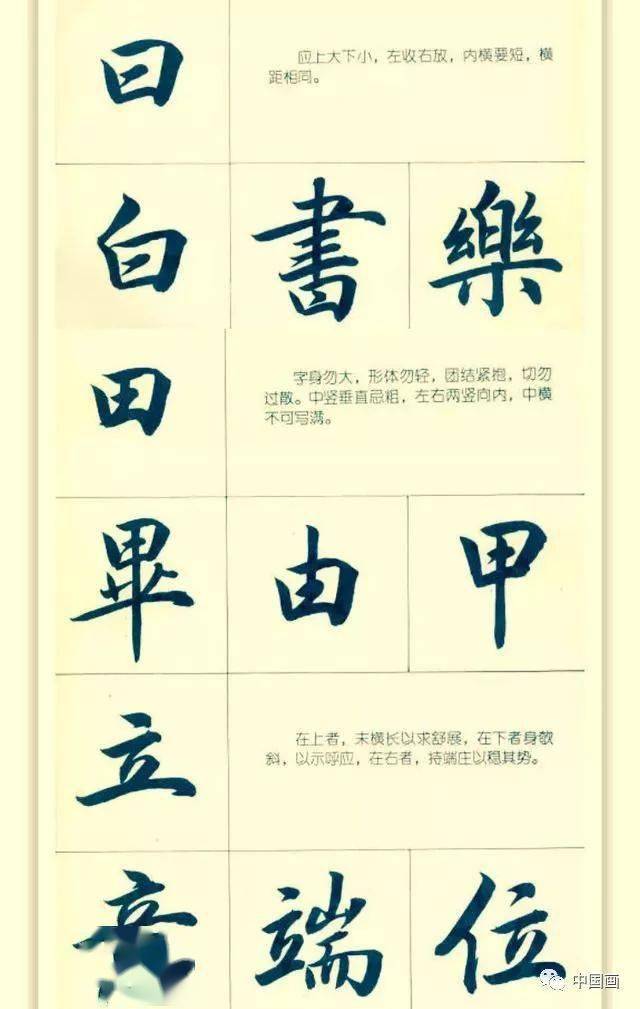 曰
应上大下小，左收右放，内横要短，横
距相同。
白 書 樂
田
字身勿大，形体勿轻，团结紧抱，切勿
过散。中竖垂直忌粗，左右两竖向内，中横
不可写满。
畢 由 甲
立
在上者，末横长以求舒展，在下者身欹
斜，以示呼应，在右者，持端庄以稳其势。
端 位
中国画